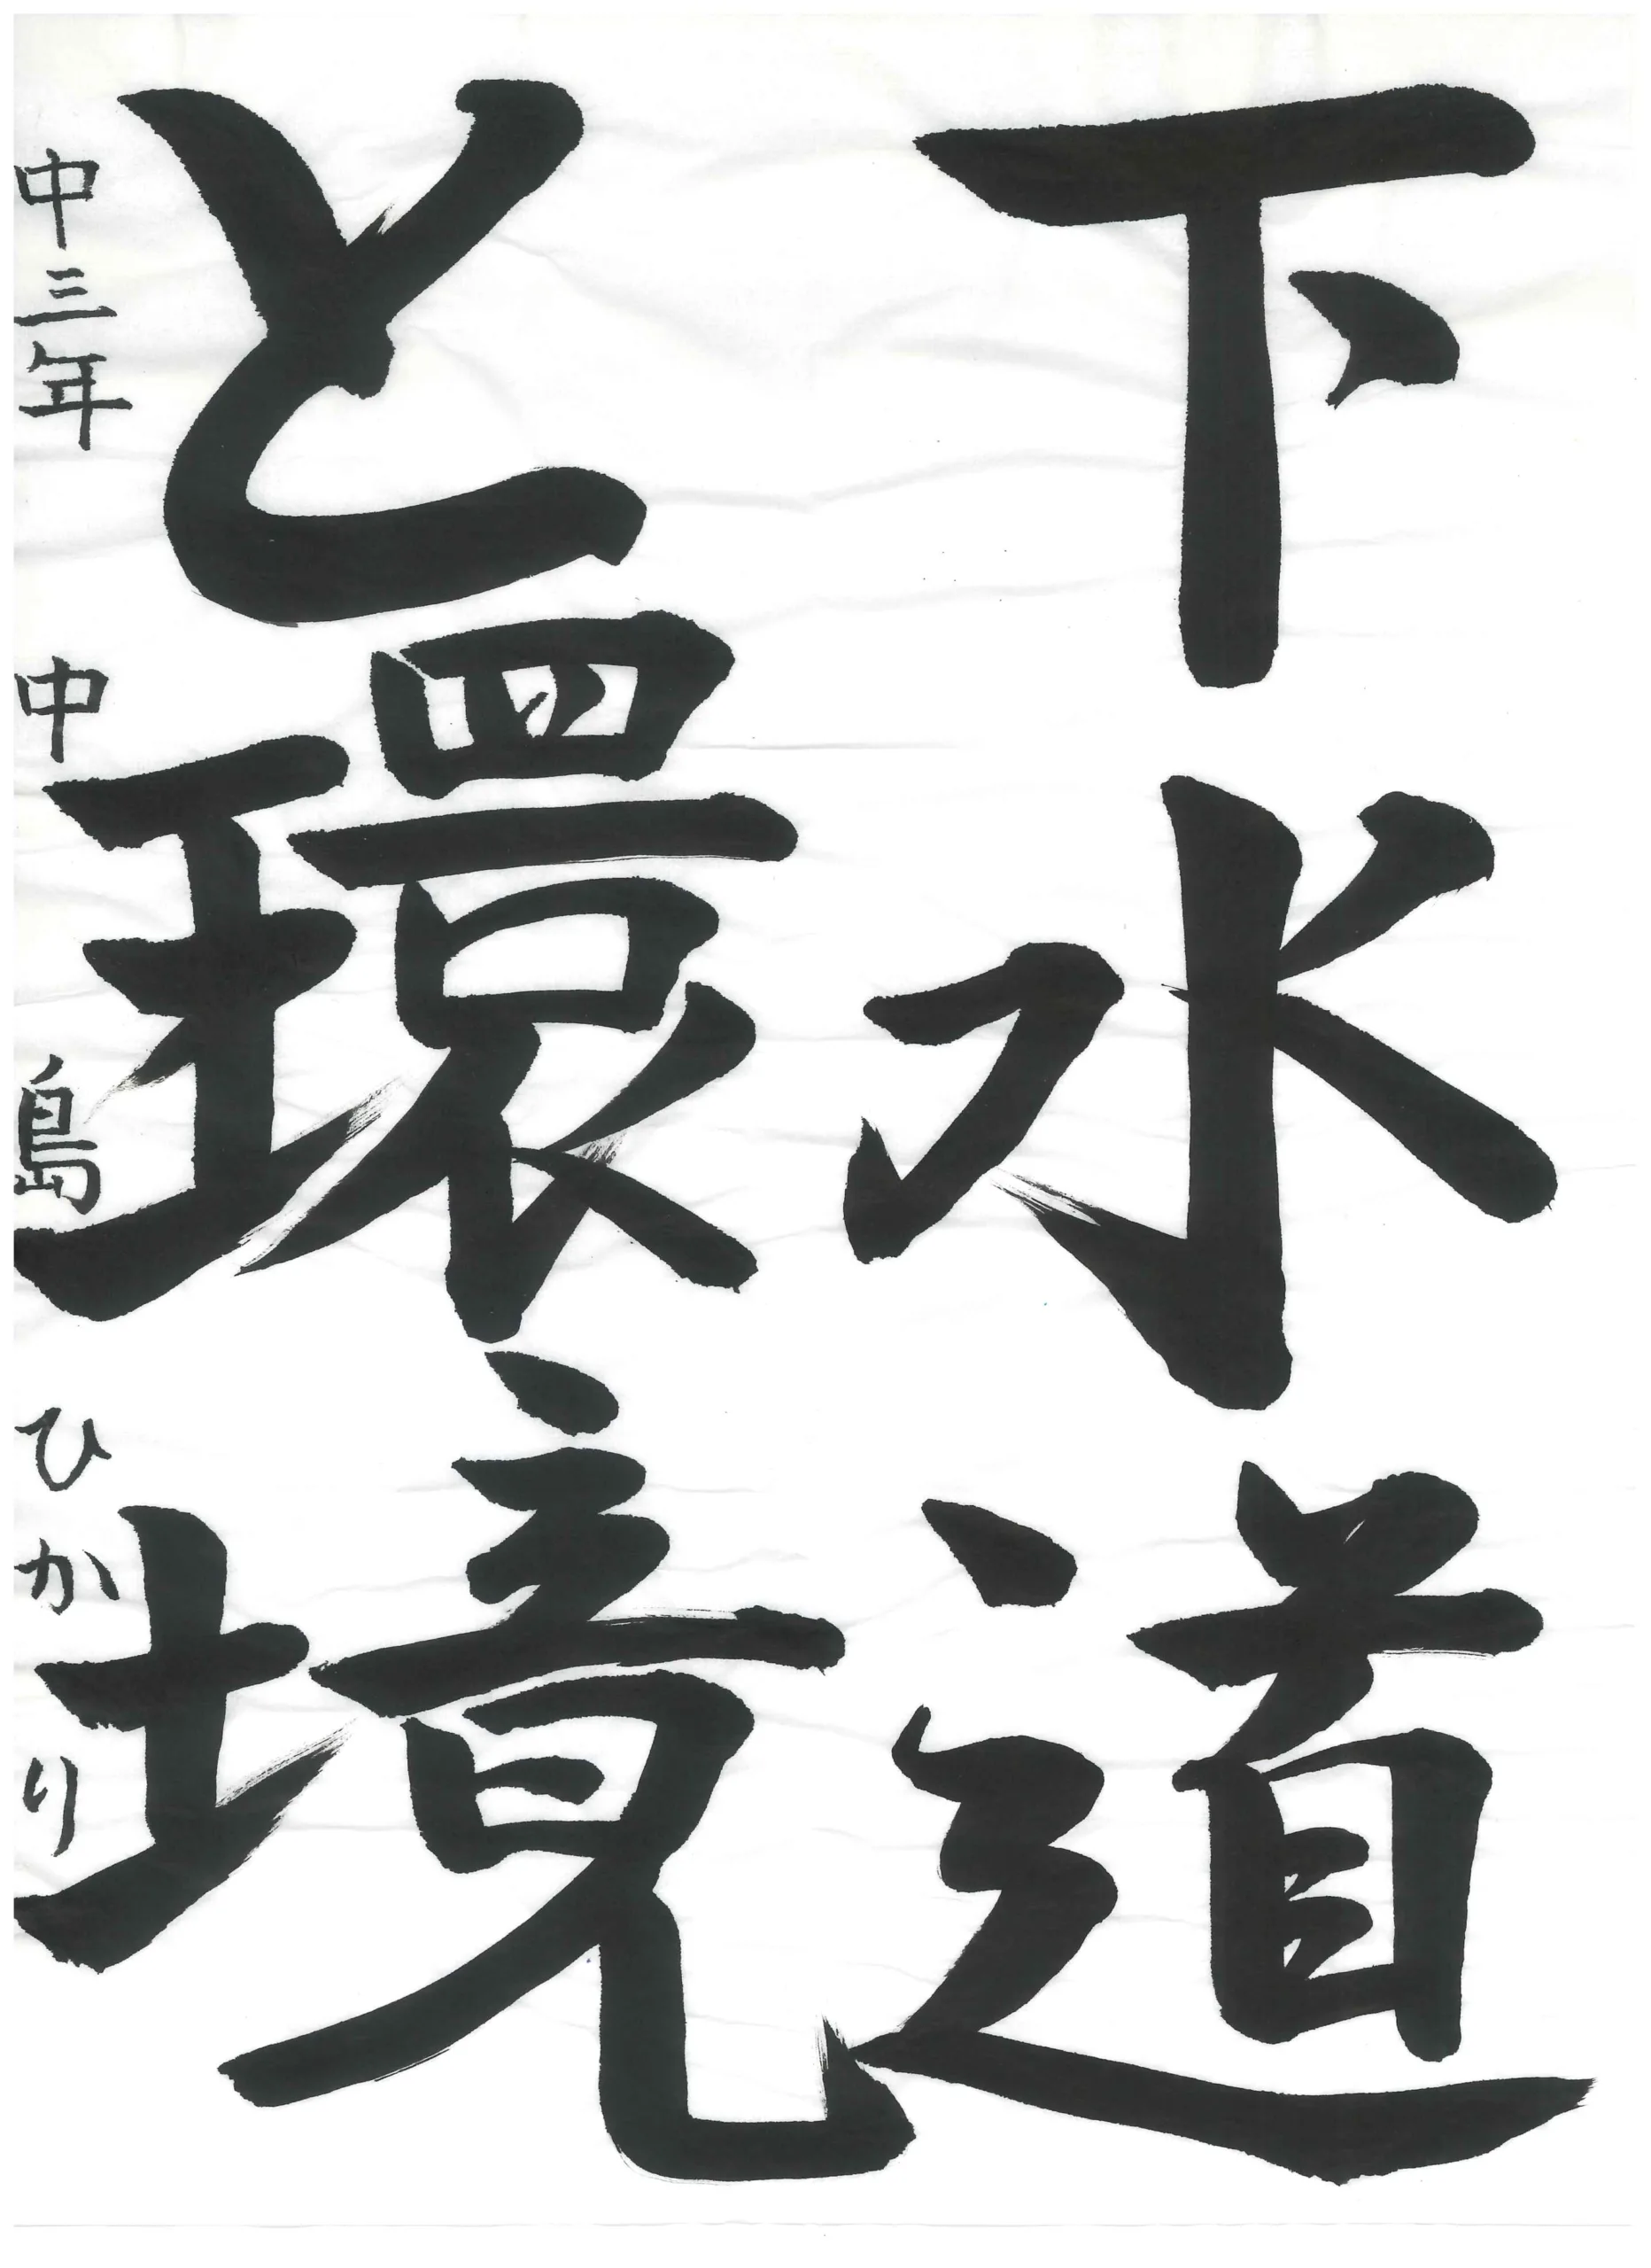 下水道
と環境
中三年 中島ひかり